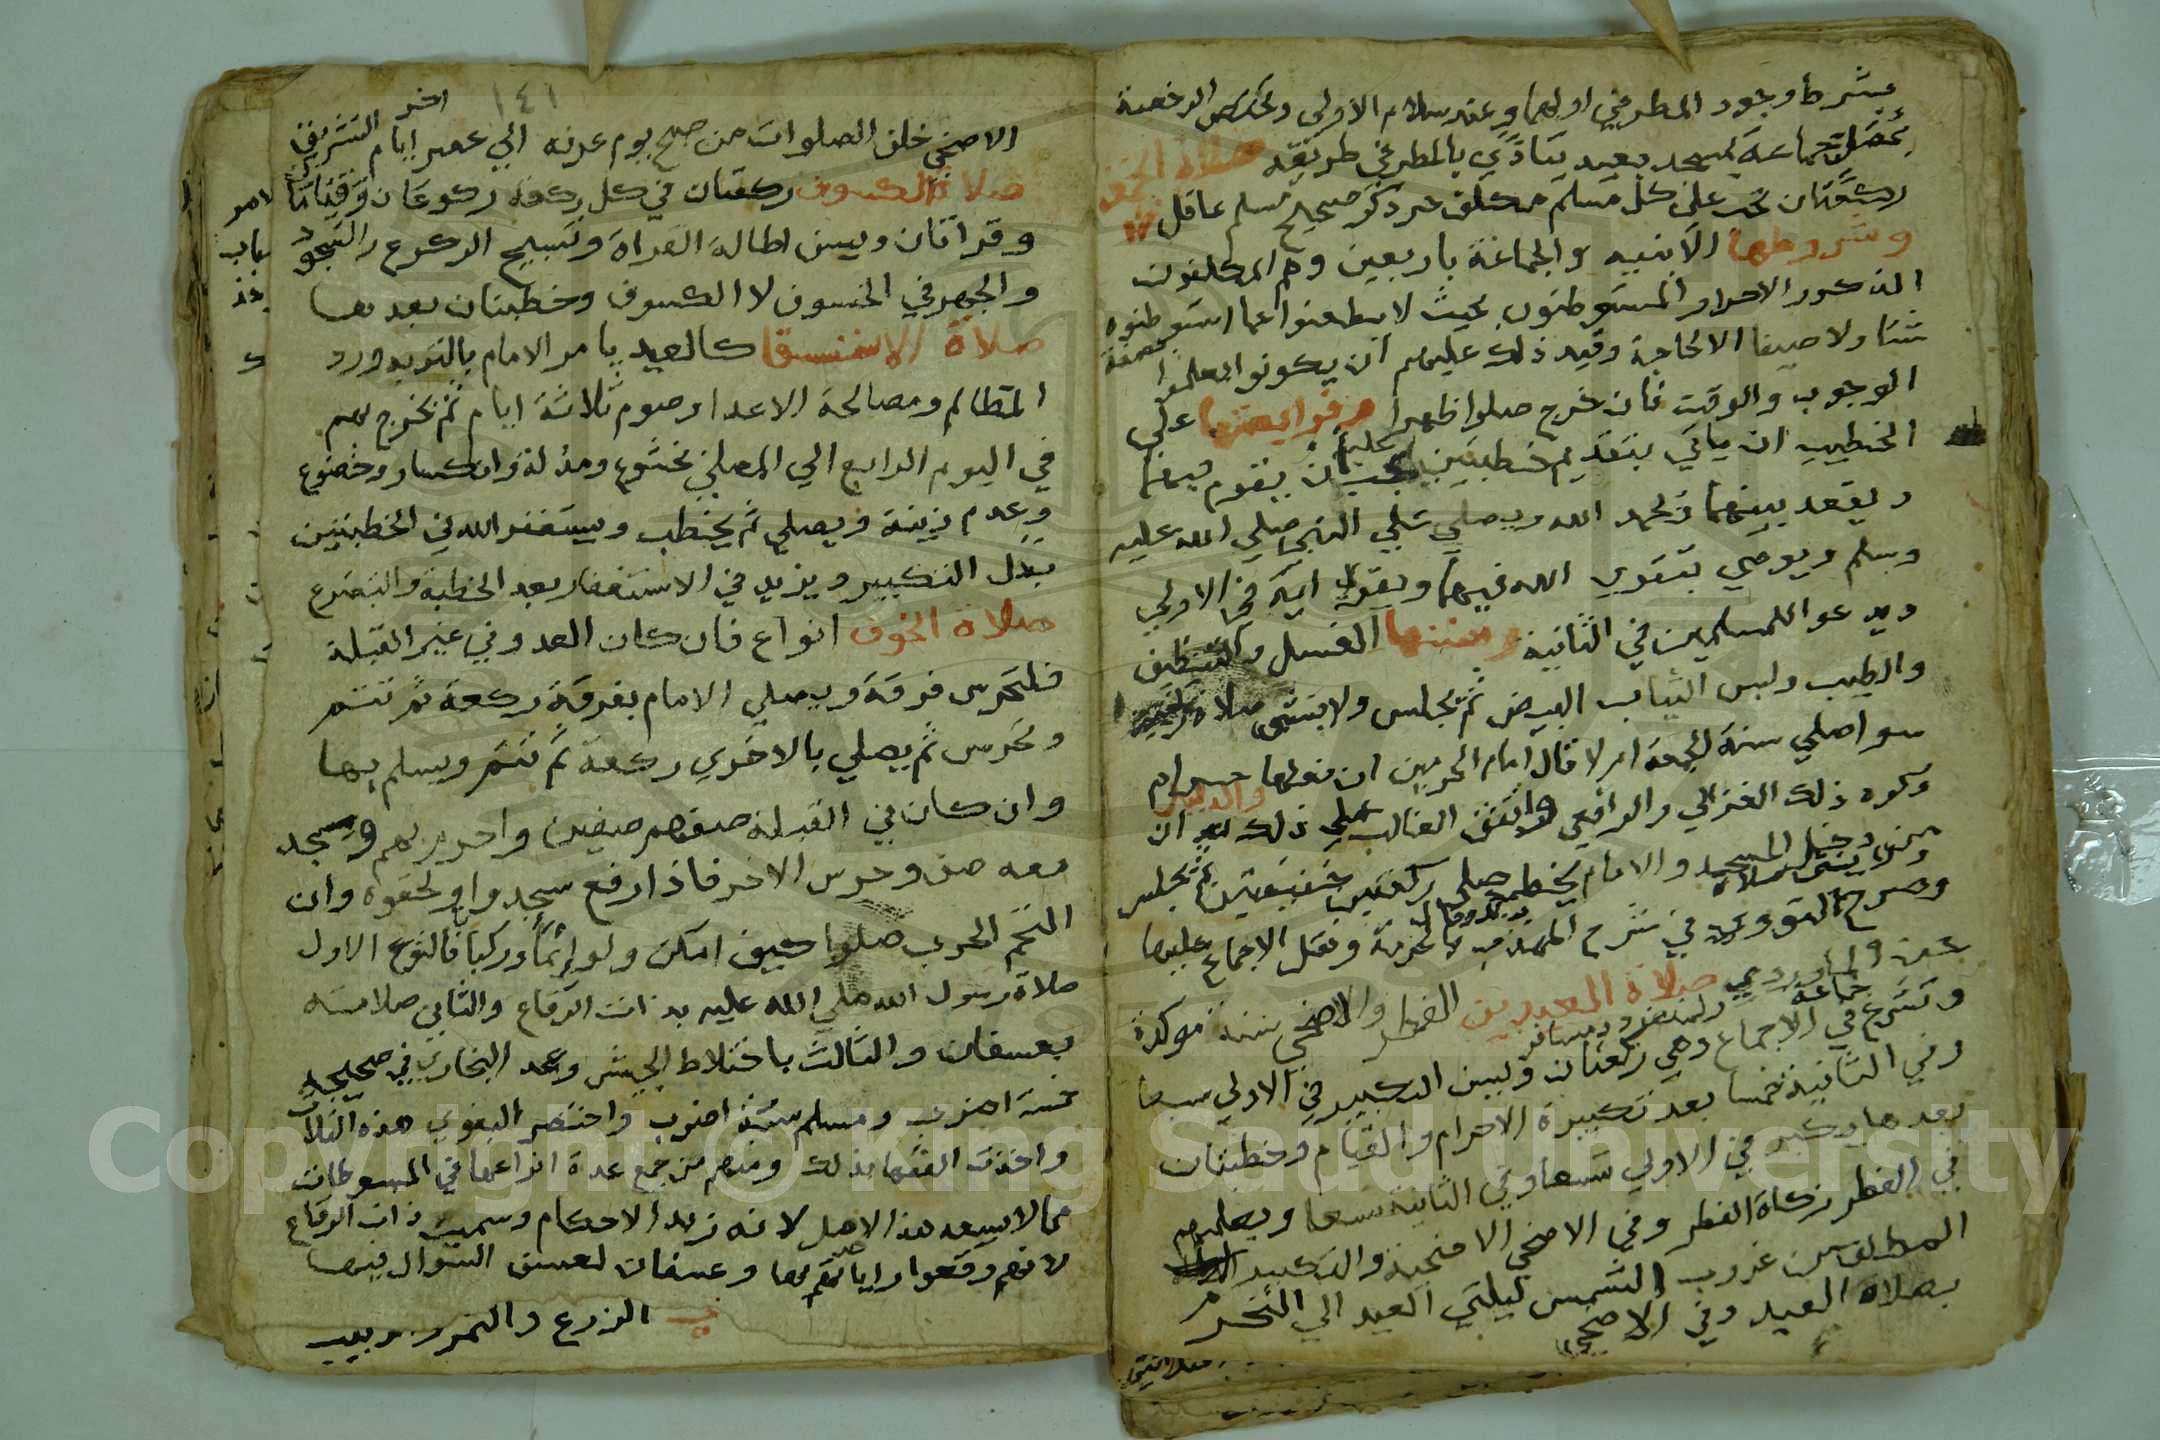 بشرط وجود المطر في اولهما وعند سلام الاولى وتختص الرخصة
بمصلي جماعة بمسجد بعيد يتاذي بالمطر في طريقه صلاة الجمعة
ركعتان تجب علي كل مسلم مكلف حر ذكر صحيح مسلم عاقل
وشروطها الابنيه والجماعة باربعين وهم المكلفون
الذكور الاحرار المستوطنون بحيث لا يظعنوا عما استوطنوه
شتا ولا صيفا الا لحاجة وقيد ذلك عليهم ان يكونوا
الوجوب والوقت فان خرج صلوا ظهرا وفرايضها علي
الخطيب ان ياتي بتقديم خطبتين يجب ان يقوم فيهما
ويقعد بينهما وحمد الله ويصلي علي النبي صلي الله عليه
وسلم ويوصي بتقوي الله فيهما ويقول اية في الاولي
ويدعو اللمسلمين في الثانية وسننها الغسل والتنظيف
والطيب ولبس الثياب البيض ثم يجلس ولا ينشي صلاة
سوا صلي سنة الجمعة ام لا قال امام الحرمين ان فعلها حرام
وكره ذلك الغزالي والرافعي واتفق الغالب علي ذلك ان
من دخل المسجد والامام يخطب صلي ركعتين خفيفتين ثم يجلس
وصرح النووي في شرح المهذب لا لحرمة ونقل الاجماع عليها
عن الماوردي صلاة العيدين الفطر والاضحي سنة موكدة
وتشرع في الاجماع وهي ركعتان ويسن التكبير في الاولي سبعا
جماعة ولمنفرد ومسافر
وفي الثانية خمسا بعد تكبيرة الاحرام والقيام وخطبتان
بعدها ويكبر في الاولي تسعا وفي الثانية سبعا ويعلمهم
في الفطر زكاة الفطر وفي الاضحي الاضحية والتكبير
المطلق من غروب الشمس ليلتي العيد الي التحرم
بصلاة العيد وفي الاضحي
١٤١
الاضحي خلف الصلوات من صبح يوم عرفه الي عصر ايام التشريق
اخر
صلاة الكسوف ركعتان في كل ركعه ركوعان وقيامان
وقراتان ويسن اطالة القراة وتسبيح الركوع والسجود
والجهر في الخسوف لا الكسوف وخطبتان بعدها
صلاة الاستسقا كالعيد يامر الامام بالتوبه ورد
المظالم ومصالحة الاعدا وصوم ثلاثة ايام ثم يخرج بهم
في اليوم الرابع الي المصلي بخشوع ومذلة وانكسار وخضوع
وعدم زينة ويصلي ثم يخطب ويستغفر الله في الخطبتين
بدل التكبير ويزيد في الاستغفار بعد الخطبة والتضرع
صلاة الخوف انواع فان كان العدو في غير القبلة
فلتحرس فرقة ويصلي الامام بفرقة ركعة ثم تتم
وتحرس ثم يصلي بالاخري ركعة ثم تتم ويسلم بها
وان كان في القبلة صفهم صفين واحرم بهم ويسجد
معه صف وحرس الاخر فاذا رفع سجدوا ولحقوه وان
التحم الحرب صلوا كيف امكن ولو ايماً وركبا فالنوع الاول
صلاة رسول الله صلي الله عليه بذات الرقاع والثاني صلاته
بعسفان والثالث باختلاط الجيش وعد البخاري في صحيحه
خمسة اضرب ومسلم ستة اضرب واختصر البغوي هذه الثلاث
واخذت الفقها بذلك ومنهم من جمع عدة انواعها في المبسوطات
مما لا يسعه هذا الاصل لانه زبد الاحكام وسميت ذات الرقاع
لانهم رقعوا راياتهم بها وعسفان لعسف السوال فيها
الزرع والتمر وزبيب